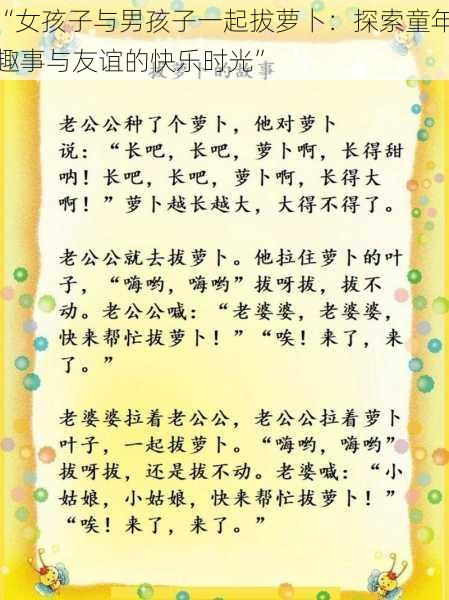 “女孩子与男孩子一起拔萝卜：探索童年
趣事与友谊的快乐时光”
拔萝卜的故事
老公公种了个萝卜，他对萝卜
说：“长吧，长吧，萝卜啊，长得甜
呐！长吧，长吧，萝卜啊，长得大
啊！”萝卜越长越大，大得不得了。
老公公就去拔萝卜。他拉住萝卜的叶
子，“嗨哟，嗨哟”拔呀拔，拔不
动。老公公喊：“老婆婆，老婆婆，
快来帮忙拔萝卜！”“唉！来了，来
了。”
老婆婆拉着老公公，老公公拉着萝卜
叶子，一起拔萝卜。“嗨哟，嗨哟”
拔呀拔，还是拔不动。老婆喊：“小
姑娘，小姑娘，快来帮忙拔萝卜！”
“唉！来了，来了。”